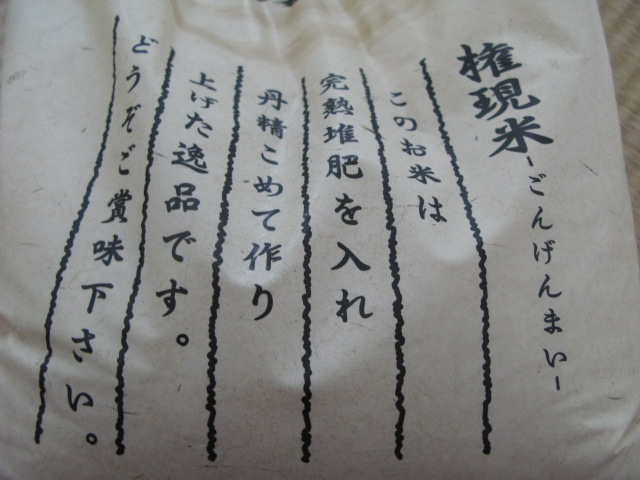 権現米-ごんげんまい-
このお米は
完熟堆肥を入れ
丹精こめて作り
上げた逸品です。
どうぞご賞味下さい。